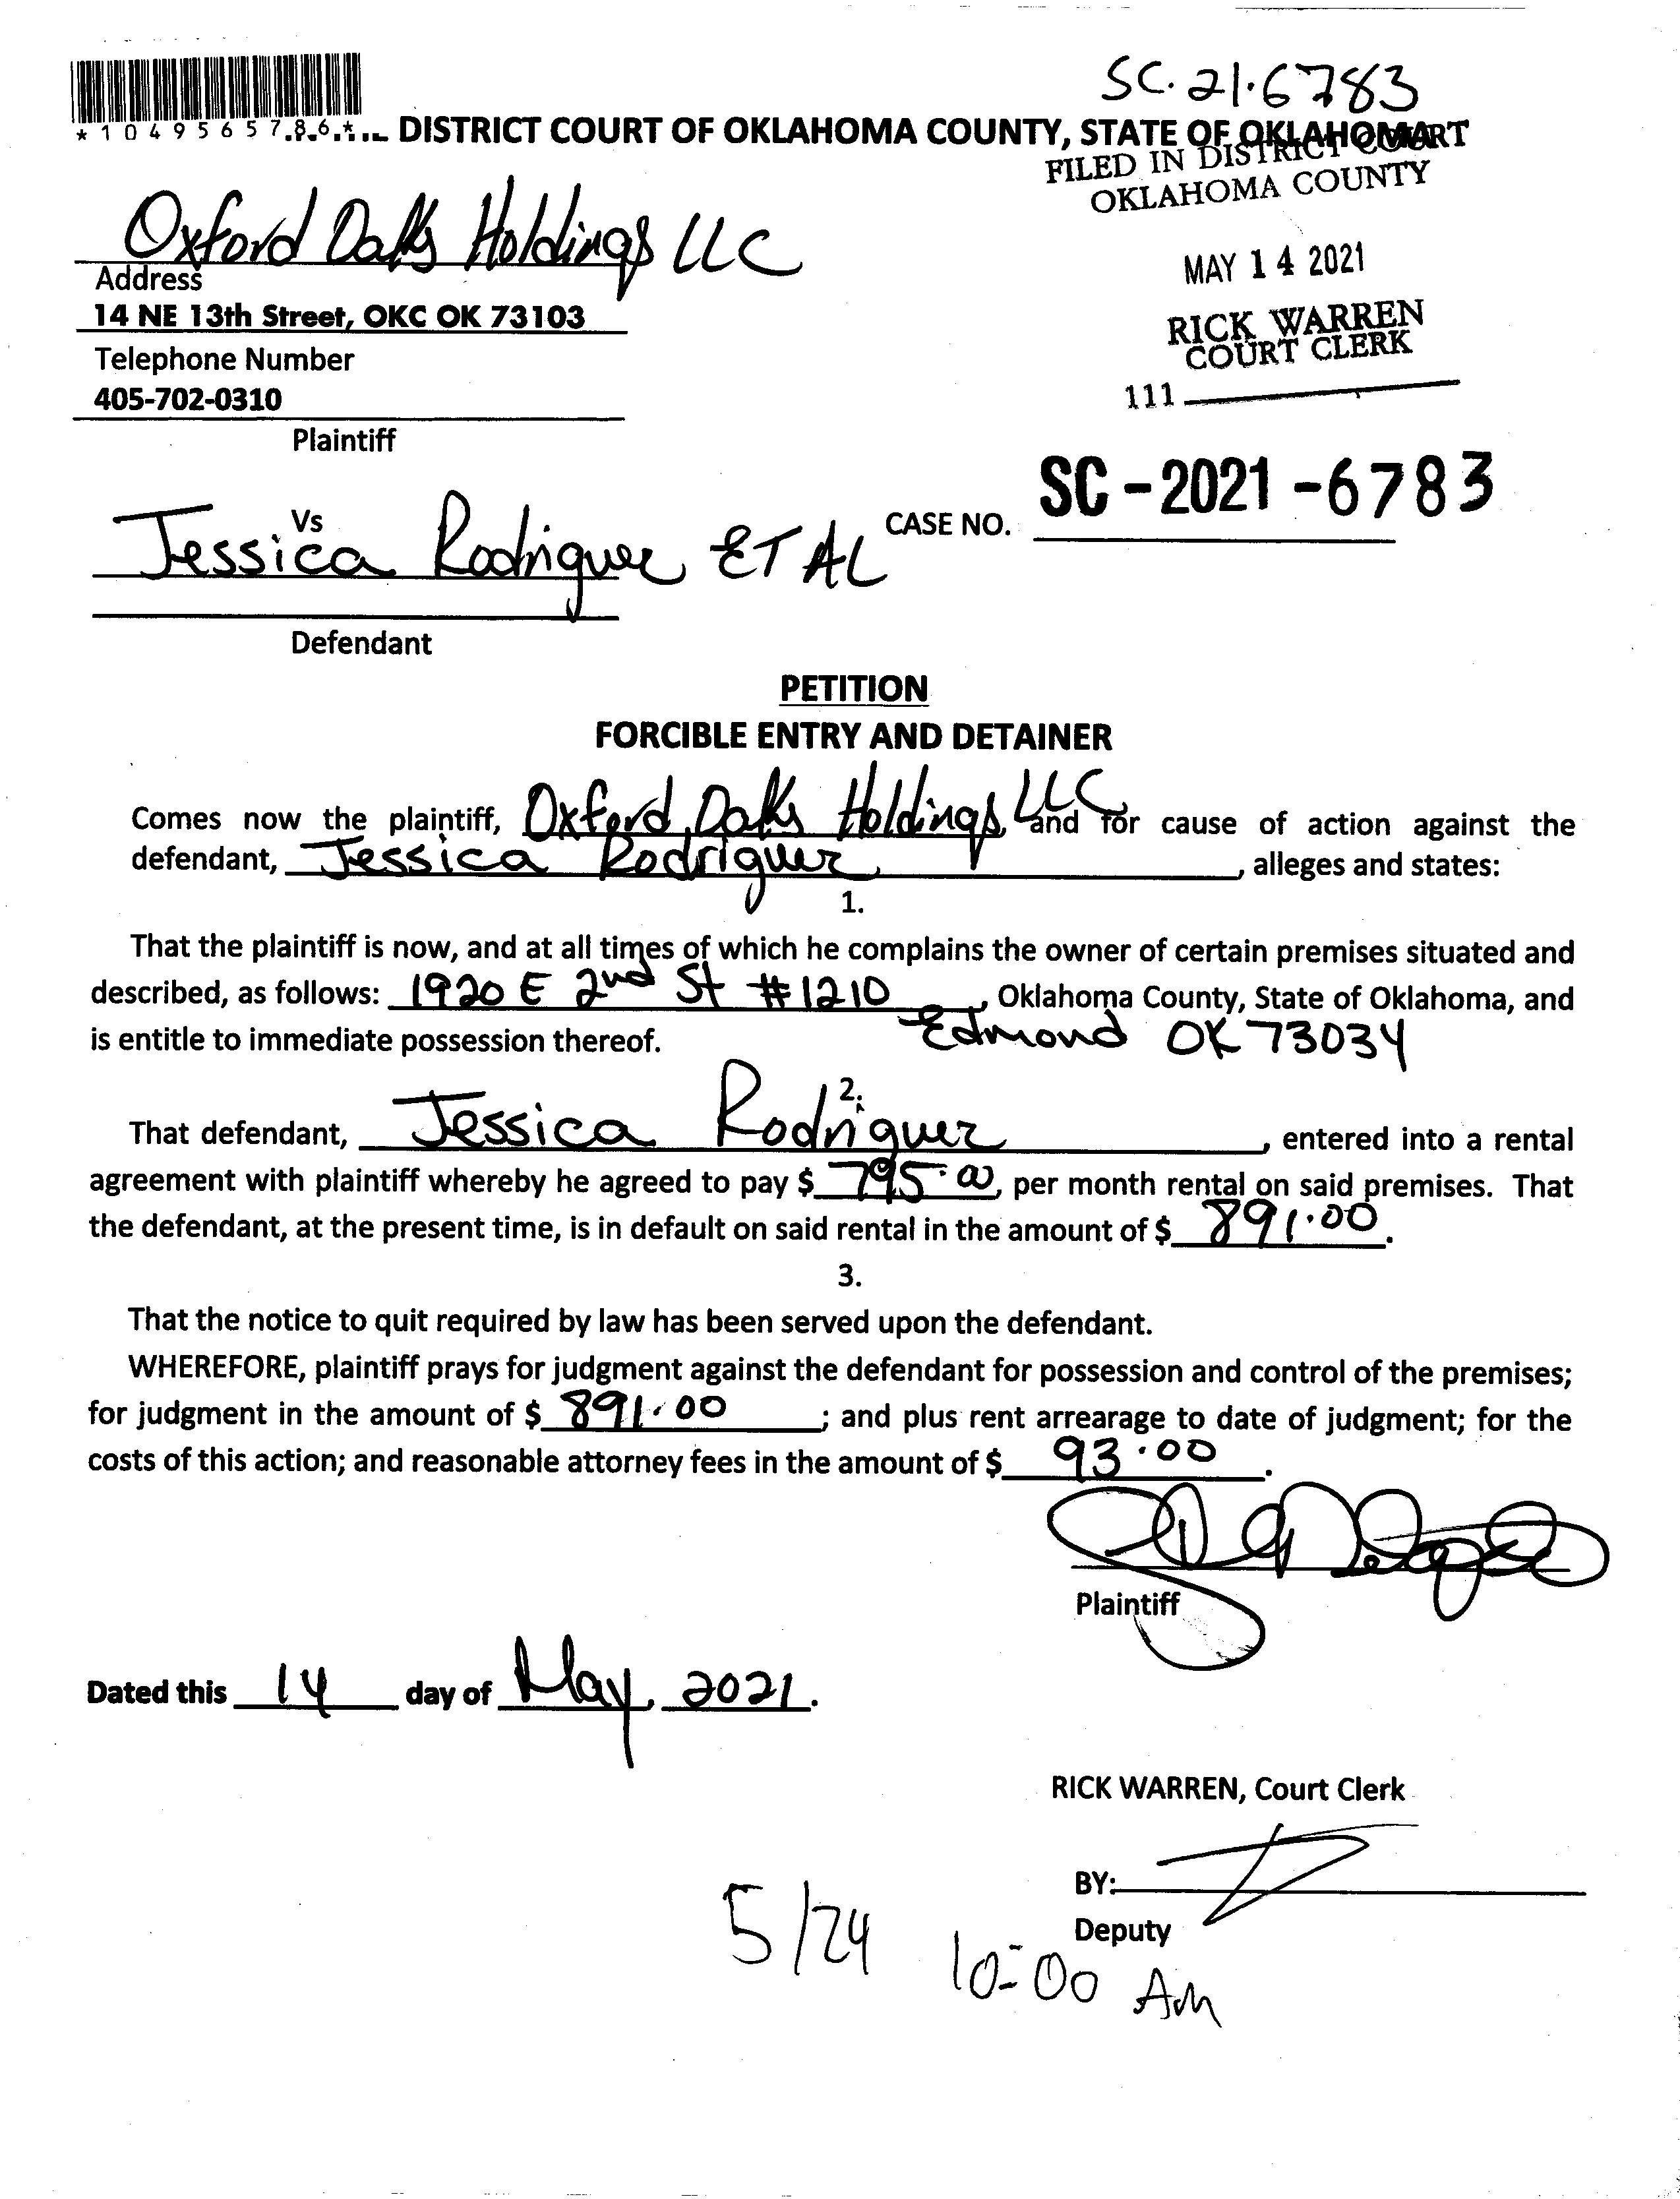 SC·21·6783
*1049565786*
DISTRICT COURT OF OKLAHOMA COUNTY, STATE OF OKLAHOMA
FILED IN DISTRICT COURT
OKLAHOMA COUNTY
Oxford Oaks Holdings LLC
MAY 14 2021
Address
14 NE 13th Street, OKC OK 73103
RICK WARREN
COURT CLERK
Telephone Number
405-702-0310
111
Plaintiff
SC-2021-6783
Vs
CASE NO.
Jessica Rodriguez ET AL
Defendant
PETITION
FORCIBLE ENTRY AND DETAINER
Comes now the plaintiff, Oxford Oaks Holdings, LLC and for cause of action against the
defendant, Jessica Rodriguez, alleges and states:
1.
That the plaintiff is now, and at all times of which he complains the owner of certain premises situated and
described, as follows: 1920 E 2nd St #1210, Oklahoma County, State of Oklahoma, and
is entitle to immediate possession thereof. Edmond OK 73034
2.
That defendant, Jessica Rodriguez, entered into a rental
agreement with plaintiff whereby he agreed to pay $ 795.00, per month rental on said premises. That
the defendant, at the present time, is in default on said rental in the amount of $ 891.00.
3.
That the notice to quit required by law has been served upon the defendant.
WHEREFORE, plaintiff prays for judgment against the defendant for possession and control of the premises;
for judgment in the amount of $ 891.00; and plus rent arrearage to date of judgment; for the
costs of this action; and reasonable attorney fees in the amount of $ 93.00.
Plaintiff
Dated this 14 day of May, 2021.
RICK WARREN, Court Clerk
BY:
Deputy
5/24 10:00 AM